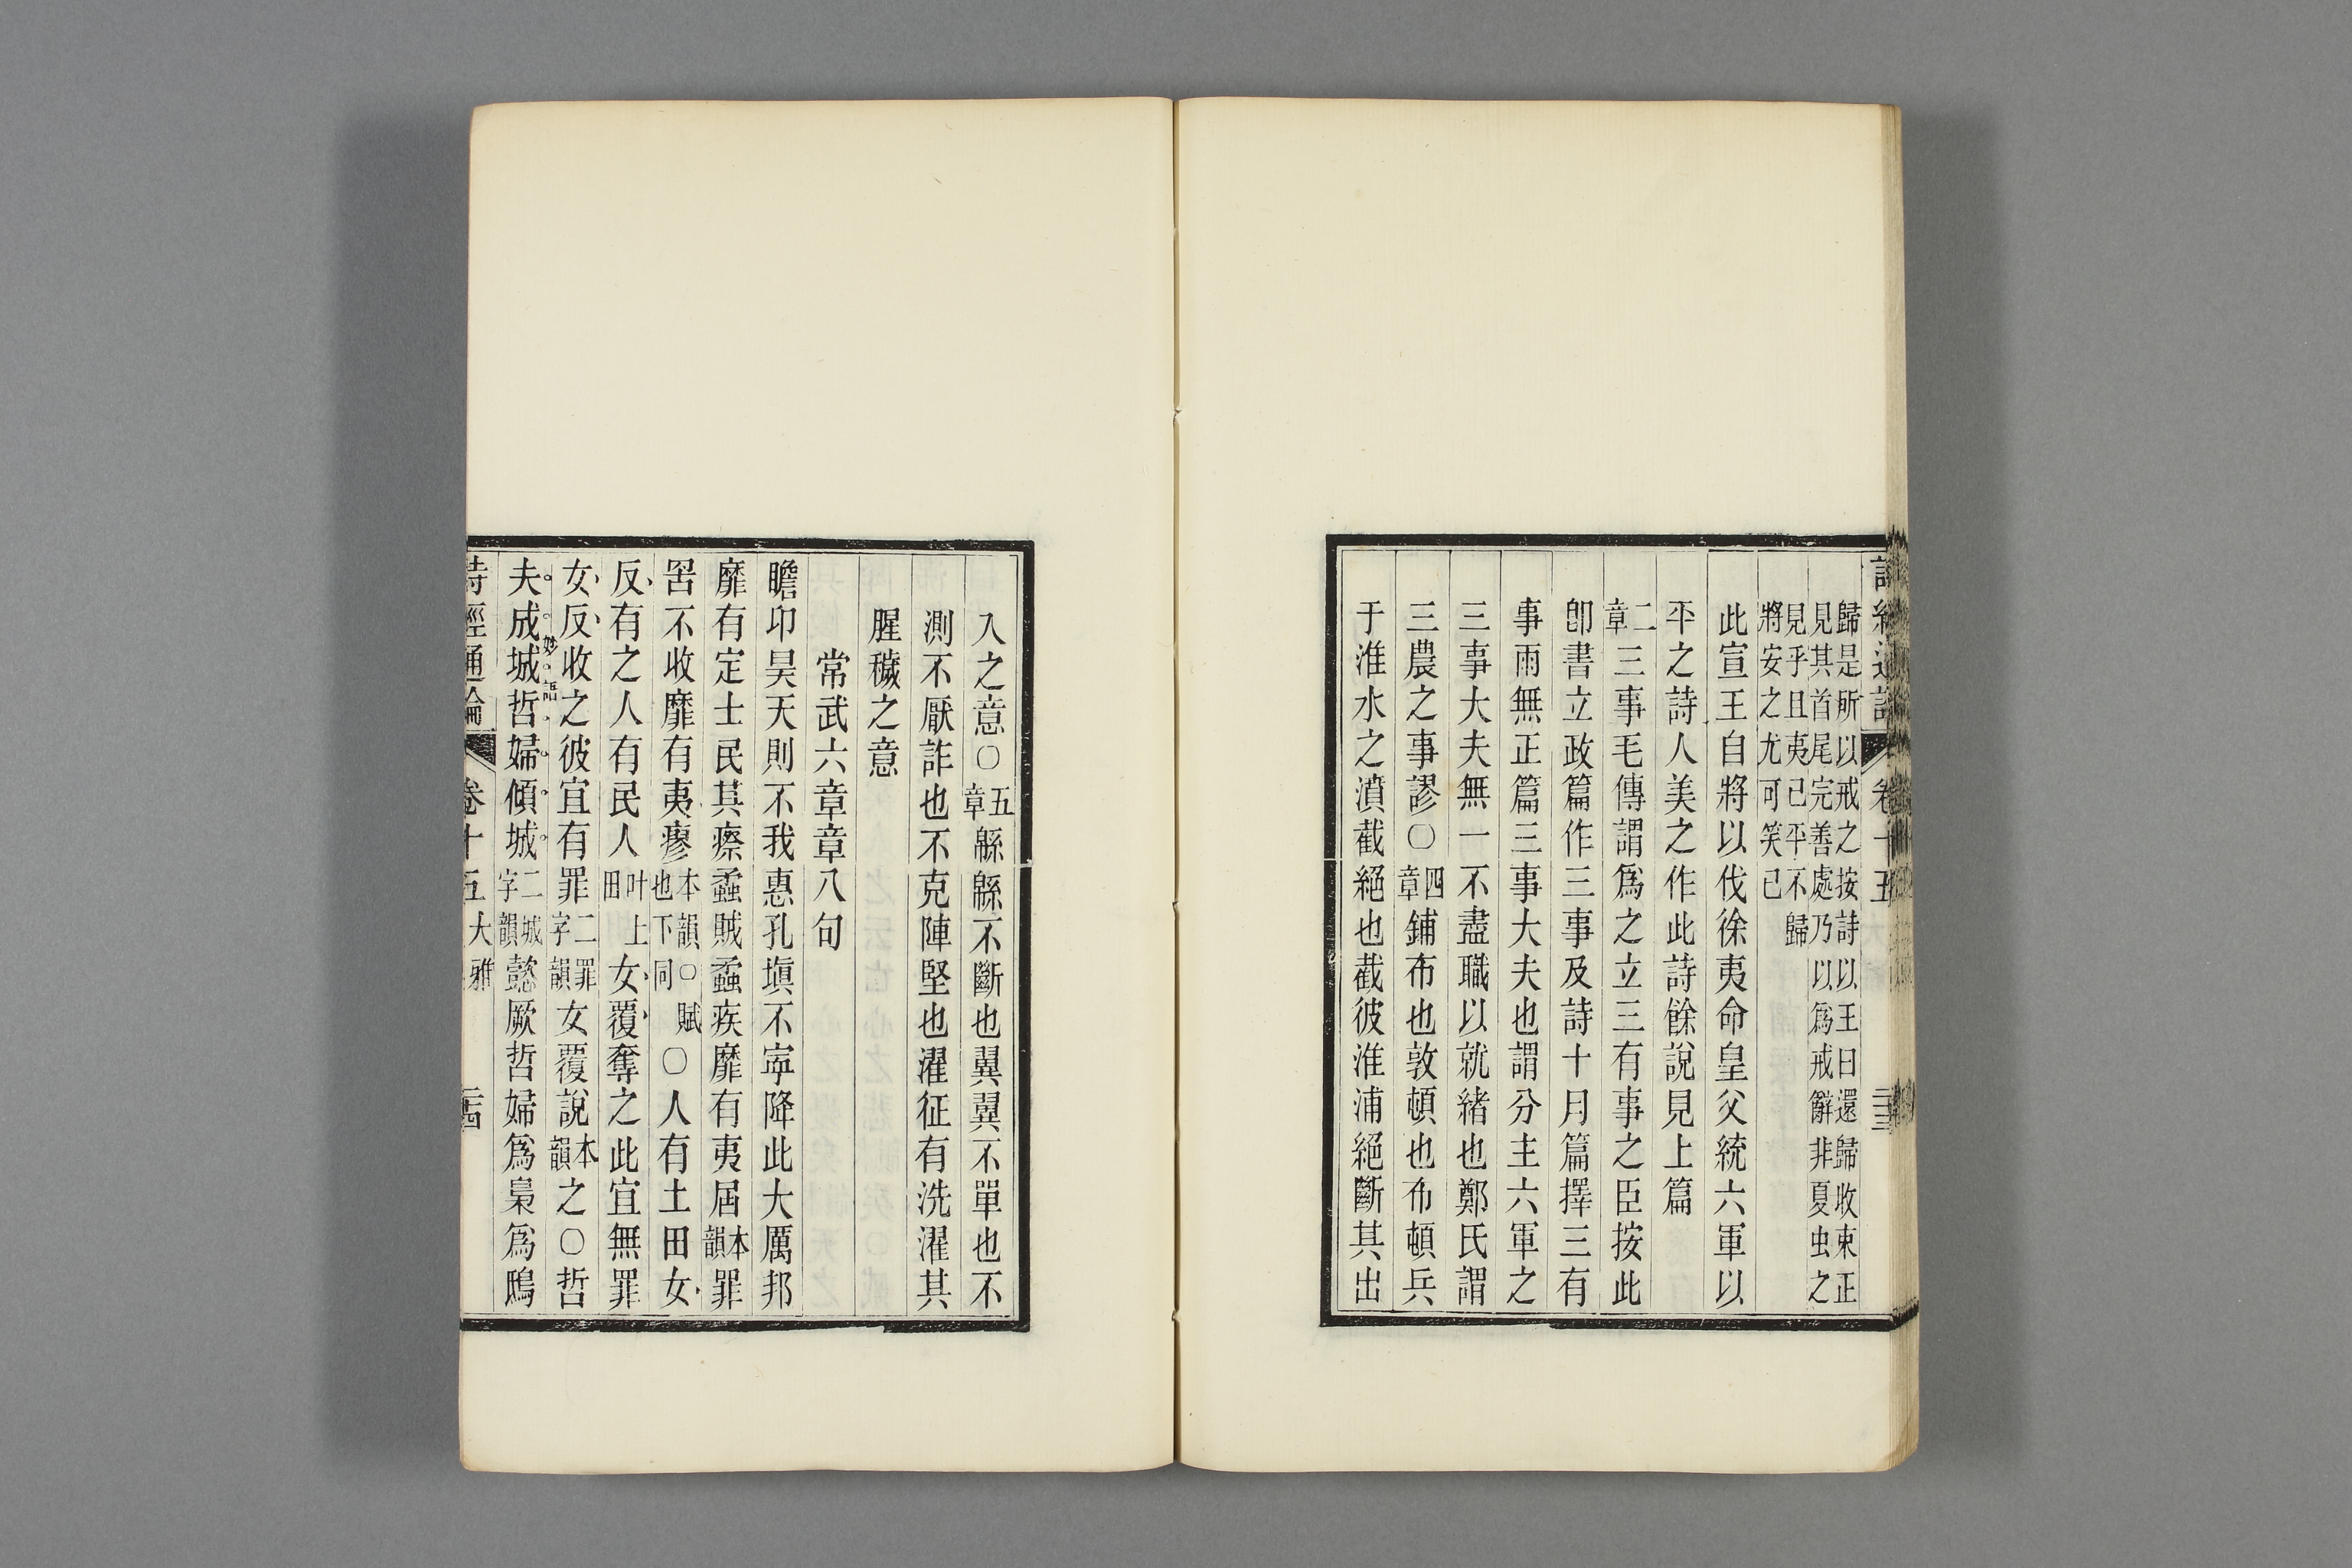 歸是所以戒之按詩以王曰還歸收束正
見其首尾完善處乃以爲戒辭非夏虫之
見乎且夷已平不歸
將安之尤可笑已
此宣王自將以伐徐夷命皇父統六軍以
平之詩人美之作此詩餘說見上篇
二章三事毛傳謂爲之立三有事之臣按此
卽書立政篇作三事及詩十月篇擇三有
事雨無正篇三事大夫也謂分主六軍之
三事大夫無一不盡職以就緒也鄭氏謂
三農之事謬〇四章鋪布也敦頓也布頓兵
于淮水之濆截絕也截彼淮浦絕斷其出
入之意〇五章緜緜不斷也翼翼不單也不
測不厭詐也不克陣堅也濯征有洗濯其
腥穢之意
常武六章章八句
瞻卬昊天則不我惠孔塡不寧降此大厲邦
靡有定士民其瘵蟊賊蟊疾靡有夷屆本韻罪
罟不收靡有夷瘳本韻〇賦也下同〇人有土田女
反有之人有民人叶上田女覆奪之此宜無罪
女反收之彼宜有罪二罪字韻女覆說本韻之〇哲
夫成城哲婦傾城二城字韻懿厥哲婦爲梟爲鴟
妙語
詩經通論 卷十五 大雅 二十四